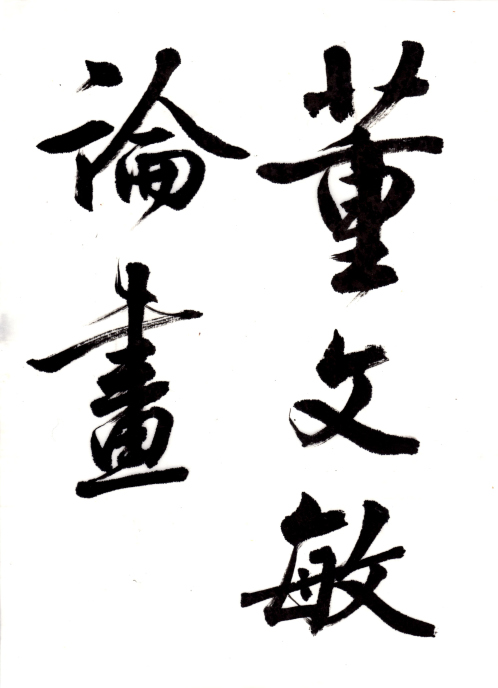 董文敏
論畫